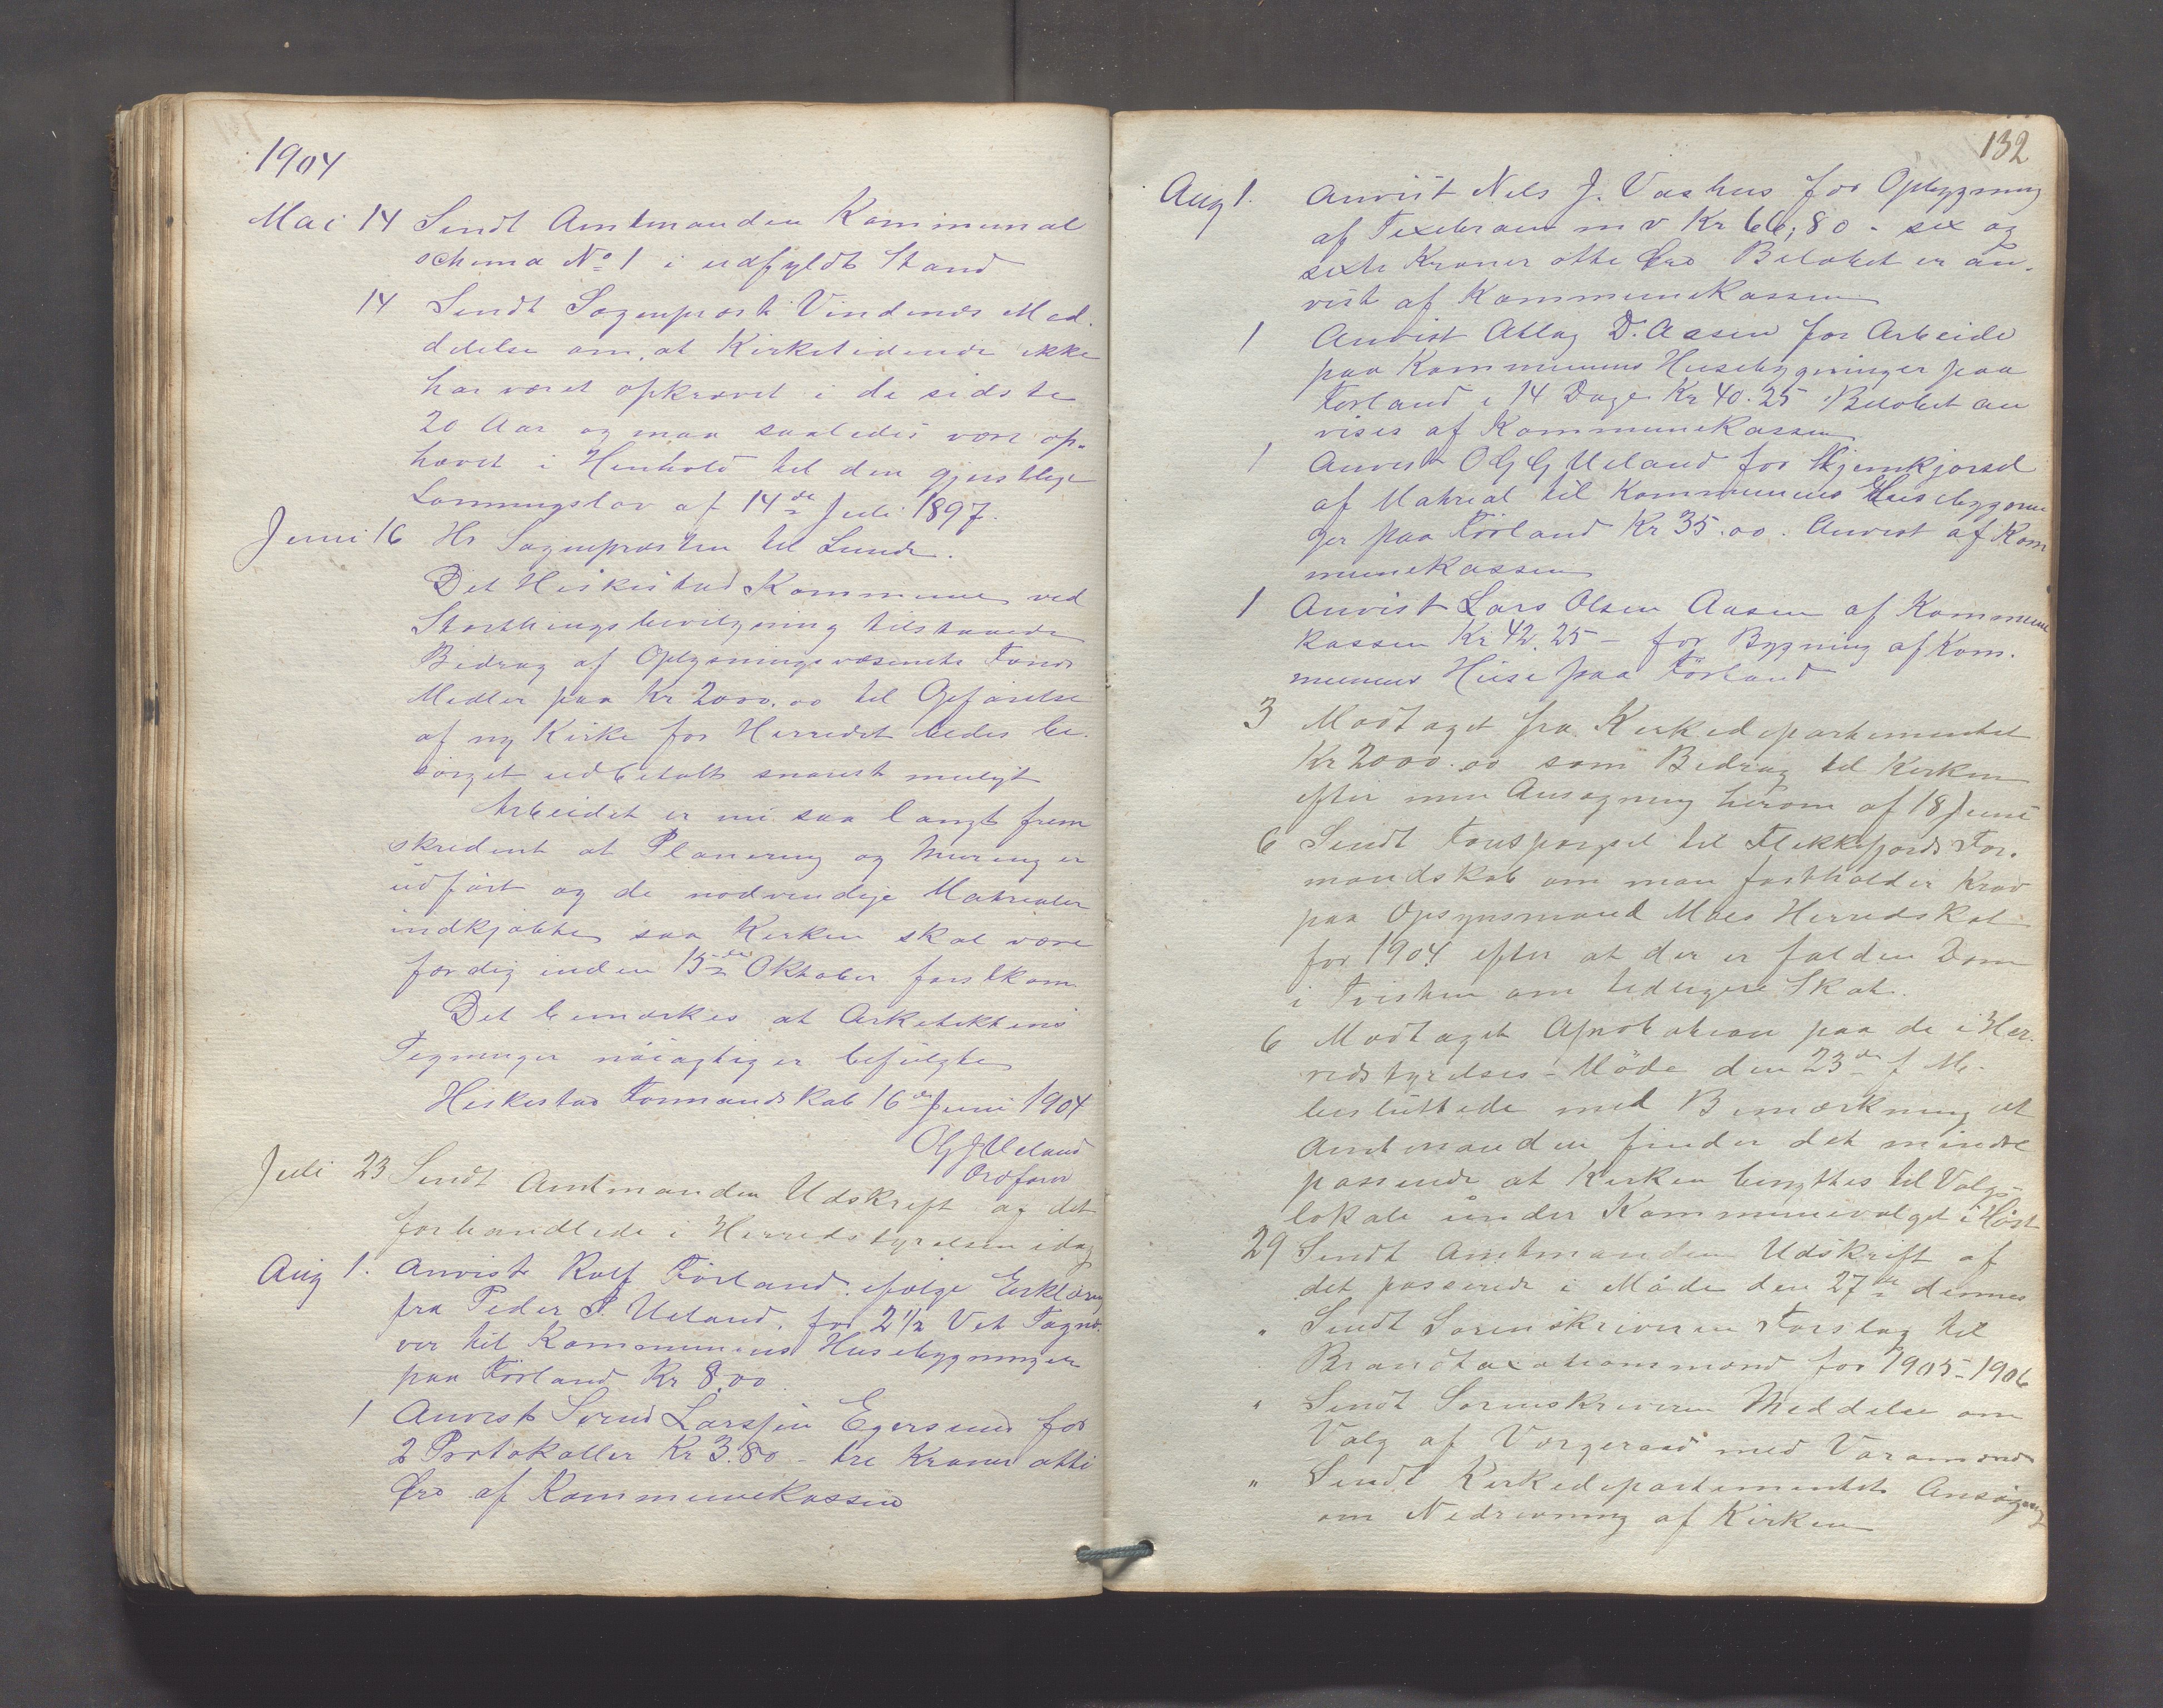 1904
Mai 14 Sendt Amtmanden Kommunal
schema No 1 i udfyldt Stand
14 Sendt Sogneprest Vindenes Med
delelse om, at Kirketiende ikke
har været opkrævet i de sidste
20 Aar og maa saaledes være op-
hævet i Henhold til den gjeistlige
Lønningslov af 14de Juli 1897.
Juni 16 Hr Sognepresten til Lunde.
Det Heskestad Kommune ved
Storthingsbevilgning tilstaaede
Bidrag af Oplysningsvæsenets Fonds
Midler paa Kr 2000.00 til Opførelse
af ny Kirke for Herredet bedes be-
sørget udbetalt snarest muligt
Arbeidet er nu saa langt frem
skrident at Planering og Muring er
udført og de nødvendige Matrialer
indkjøbte saa Kirken skal være
færdig inden 15de Oktober førstkom
Det bemærkes at Arketektens
Tegninger nøiagtig er befulgte
Heskestad Formandskab 16de Juni 1904
OGJUeland
Ordfører
Juli 23 Sendt Amtmanden Udskrift af det
forhandlede i Herredstyrelsen idag
Aug 1. Anvist Rolf Førland ifølge Erklæring
fra Peder P. Ueland, for 2 1/2 Vet Tagne-
ver til Kommunens Husebygninger
paa Førland Kr 8.00
1 Anvist Svend Larssen Egersund for
2 Protokoller Kr 3.80 - tre Kroner otti
Øre af Kommunekassen
132
Aug 1. Anvist Nels J. Vashus for Opbygning
af Texebroen m v Kr 66,80 - sex og
sexti Kroner otti Øre Beløbet er an-
vist af Kommunekassen
1 Anvist Atlag D. Aasen for Arbeide
paa Kommunens Husebygninger paa
Førland i 14 Dage Kr 40.25 Beløbet an
vises af Kommunekassen
1 Anvist O G G Ueland for Hjemkjørsel
af Matrial til Kommunens Husebygnin
ger paa Førland Kr 35.00. Anvist af Kom
munekassen
1 Anvist Lars Olsen Aasen af Kommune
kassen Kr 42.25 - for Bygning af Kom-
munens Huse paa Førland
3 Modtaget fra Kirkedepartementet
Kr 2000.00 som Bidrag til Kirken
efter min Ansøgning herom af 18 Juni
6 Sendt Forespørgsel til Flekkefjords For-
mandskab om man fastholder Krav
paa Opsynsmand Moes Herredskat
for 1904 efter at der er falden Dom
i Tvisten om tidligere Skat.
6 Modtaget Aprobation paa de i Her-
redstyrelses-Møde den 23de f M.
besluttede med Bemærkning at
Amtmanden finder det mindre
passende at Kirken benyttes til Valg-
lokale under Kommunevalget i Høst
29 Sendt Amtmanden Udskrift af
det passerede i Møde den 27de dennes
" Sendt Sorenskriveren Forslag til
Brandtaxationsmænd for 1905-1906
" Sendt Sorenskriveren Meddelse om
Valg af Vergeraad med Varamænd
" Sendt Kirkedepartementet Ansøgning
om Nedrivning af Kirken